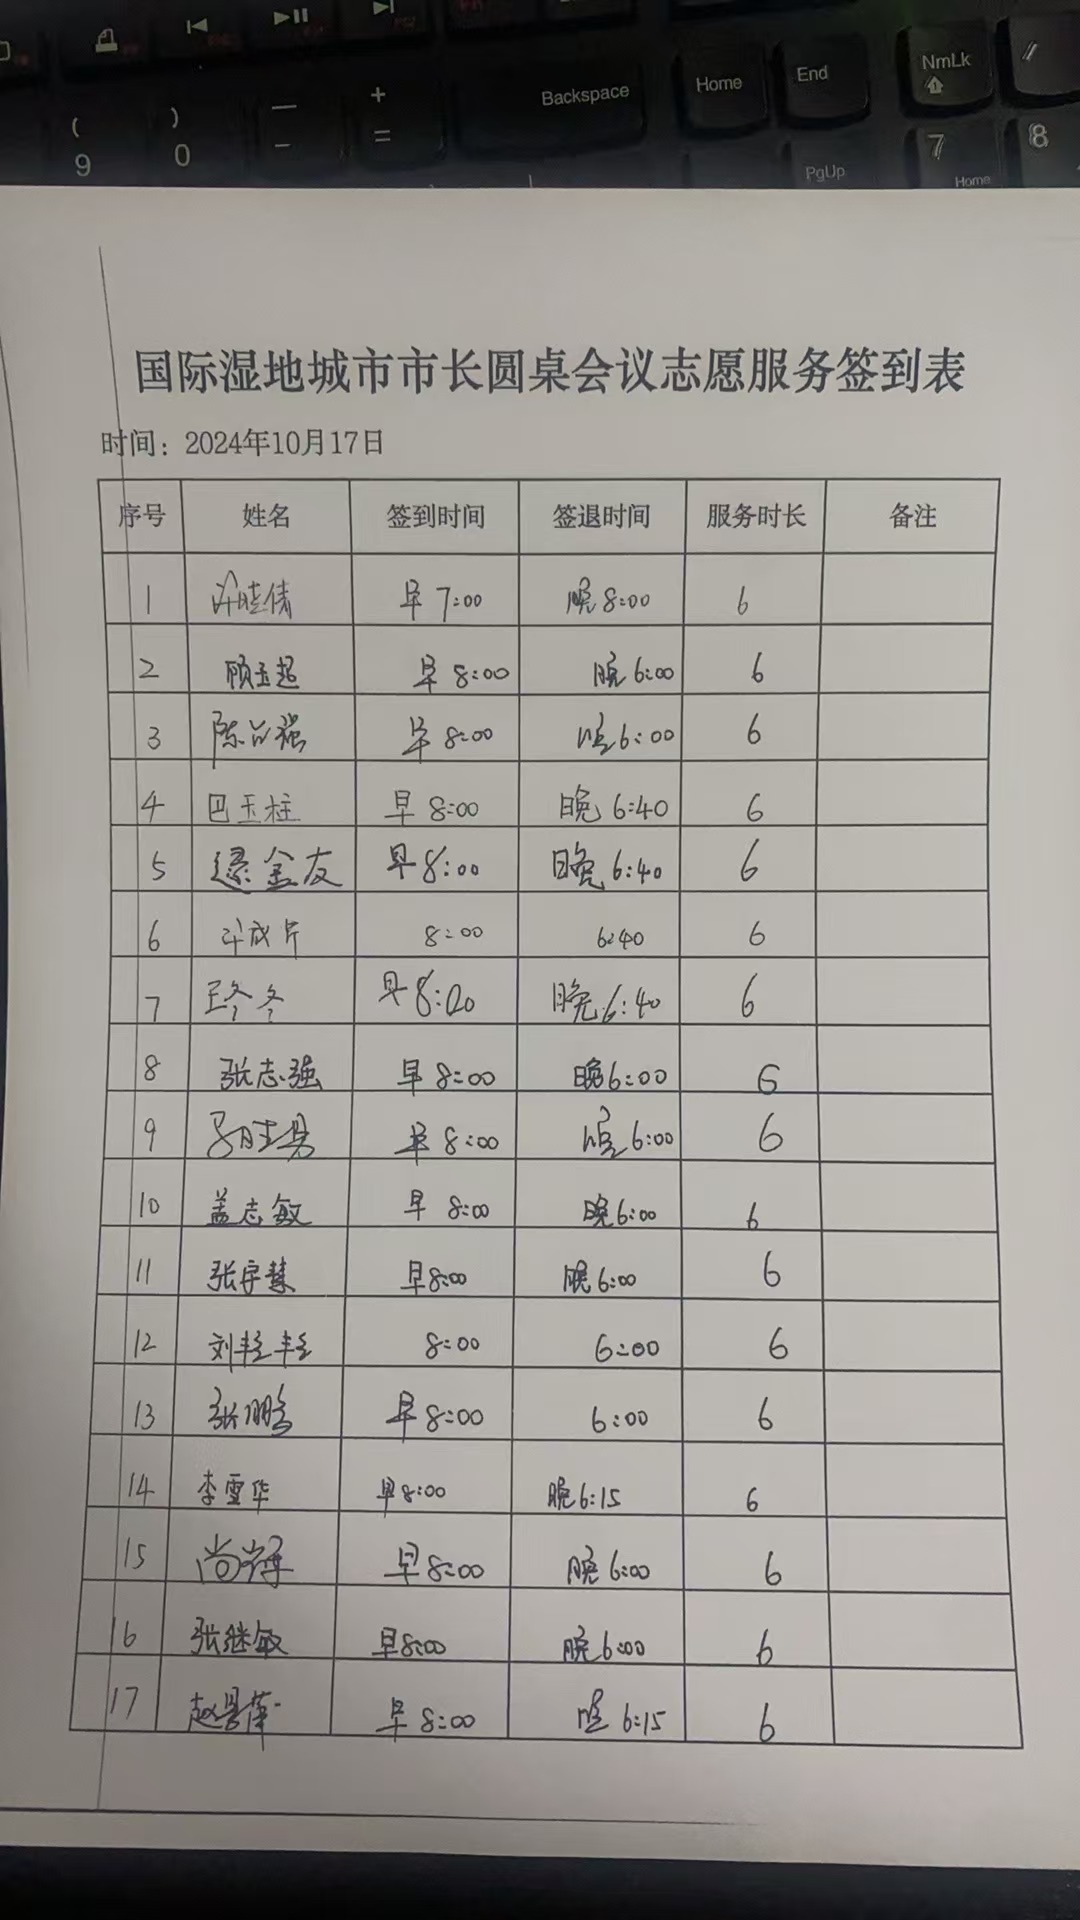 9 ( 0 ) - — = + Backspace Home End NmLk /
PgUp 7 Home 8
国际湿地城市市长圆桌会议志愿服务签到表
时间：2024年10月17日
序号 姓名 签到时间 签退时间 服务时长 备注
1 许晓倩 早 7:00 晚 8:00 6
2 顾玉超 早 8:00 晚 6:00 6
3 陈 强 早 8:00 晚 6:00 6
4 巴玉柱 早 8:00 晚 6:40 6
5 金友 早 8:00 晚 6:40 6
6 8:00 6:40 6
7 冬 早 8:20 晚 6:40 6
8 张志强 早 8:00 晚 6:00 6
9 早 8:00 晚 6:00 6
10 盖志敏 早 8:00 晚 6:00 6
11 张宇慧 早 8:00 晚 6:00 6
12 刘 8:00 6:00 6
13 张鹏 早 8:00 6:00 6
14 李雪华 早 8:00 晚 6:15 6
15 尚 早 8:00 晚 6:00 6
16 张继敏 早 8:00 晚 6:00 6
17 赵景萍 早 8:00 晚 6:15 6